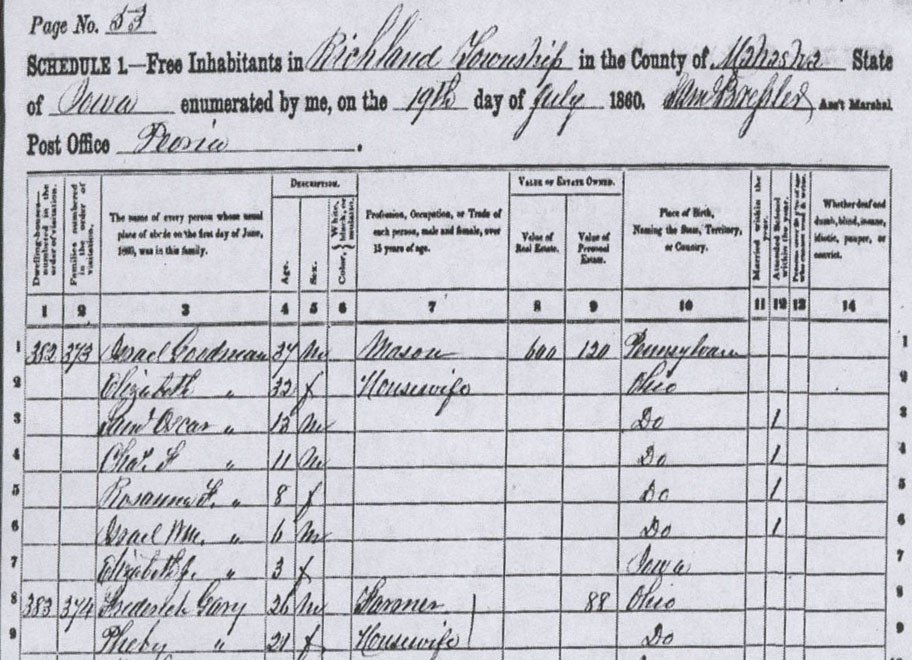 Page No. 53
SCHEDULE 1.—Free Inhabitants in Richland Township in the County of Mahaska State
of Iowa enumerated by me, on the 19th day of July 1860. Ass't Marshal.
Post Office Peoria.
DESCRIPTION. VALUE OF ESTATE OWNED.
Dwelling-houses—numbered in the order of visitation.
Families numbered in the order of visitation.
The name of every person whose usual place of abode on the first day of June, 1860, was in this family.
Age.
Sex.
Color, White, black, or mulatto.
Profession, Occupation, or Trade of each person, male and female, over 15 years of age.
Value of Real Estate.
Value of Personal Estate.
Place of Birth, Naming the State, Territory, or Country.
Married within the year.
Attended School within the year.
Whether deaf and dumb, blind, insane, idiotic, pauper, or convict.
1 2 3 4 5 6 7 8 9 10 11 12 13 14
1 382 373 Israel Goodman 37 m Mason 600 120 Pennsylvania 1
2 Elizabeth " 32 f Housewife Ohio 2
3 Saml Oscar " 13 m Do 1 3
4 Chas. F " 11 m Do 1 4
5 Rosanna F. " 8 f Do 1 5
6 Israel Wm. " 6 m Do 1 6
7 Elizabeth J. " 3 f Iowa 7
8 383 374 Frederick Gary 26 m Farmer 88 Ohio 8
9 Pheby " 21 f Housewife Do 9